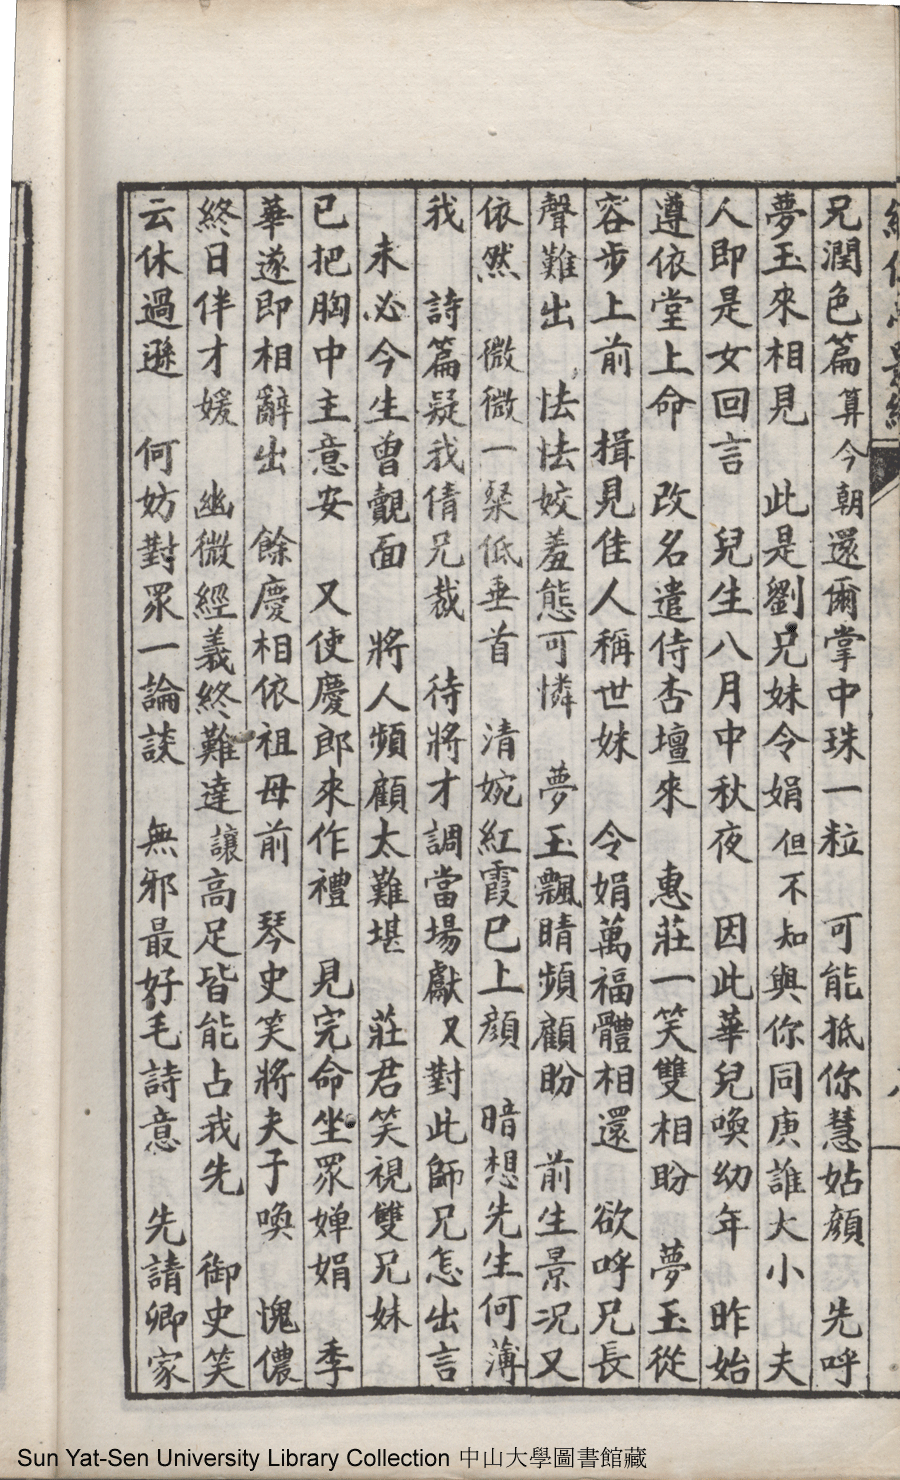 兄潤色篇 算今朝還爾掌中珠一粒 可能抵你慧姑顏 先呼
夢玉來相見 此是劉兄妹令娟 但不知與你同庚誰大小 夫
人即是女回言 兒生八月中秋夜 因此華兒喚幼年 昨始
遵依堂上命 改名遣侍杏壇來 惠莊一笑雙相盼 夢玉從
容步上前 揖見佳人稱世妹 令娟萬福體相還 欲呼兄長
聲難出 怯怯姣羞態可憐 夢玉飄睛頻顧盼 前生景況又
依然 微微一粲低垂首 清婉紅霞已上顏 暗想先生何薄
我 詩篇疑我倩兄裁 待將才調當場獻 又對此師兄怎出言
未必今生曾覿面 將人頻顧太難堪 莊君笑視雙兄妹
已把胸中主意安 又使慶郎來作禮 見完命坐眾嬋娟 季
華遂即相辭出 餘慶相依祖母前 琴史笑將夫子喚 愧儂
終日伴才媛 幽微經義終難達 讓高足皆能占我先 御史笑
云休過遜 何妨對眾一論談 無邪最好毛詩意 先請卿家
Sun Yat-Sen University Library Collection 中山大學圖書館藏